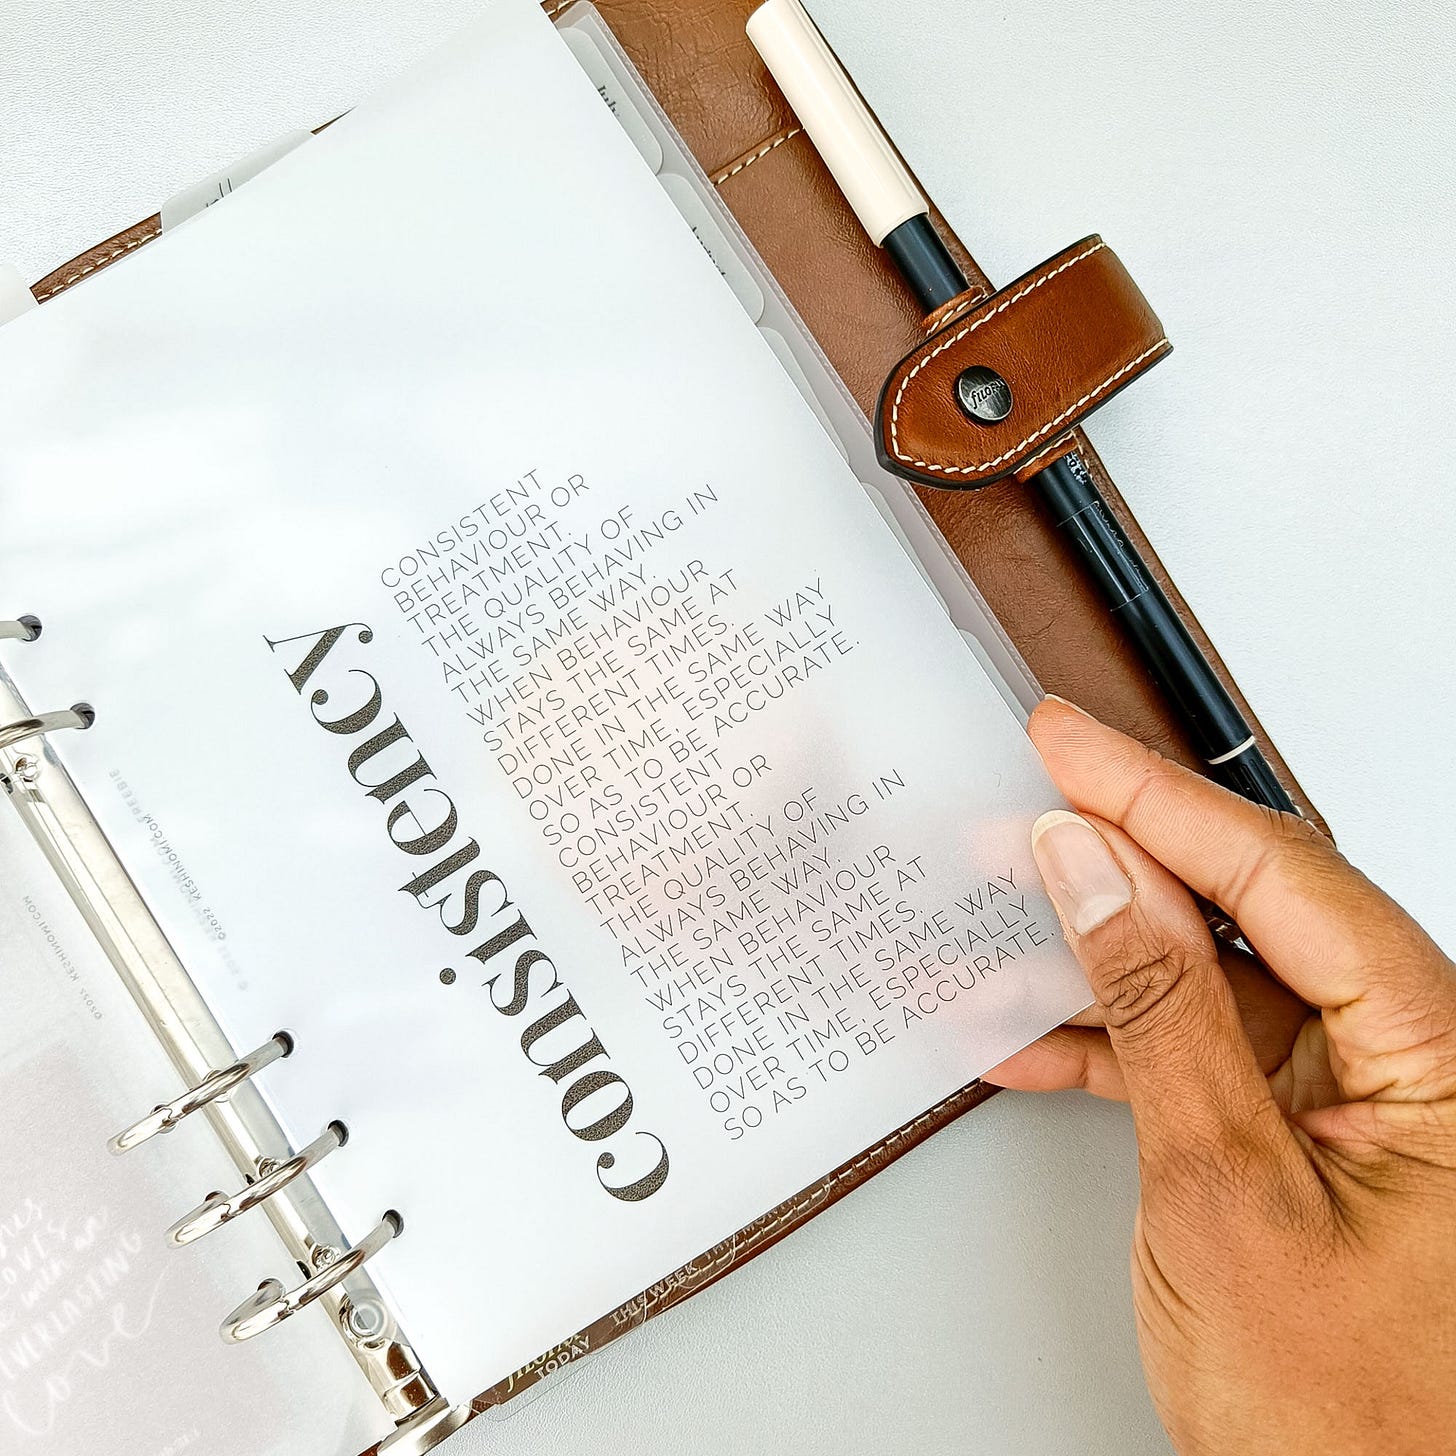 consistency
CONSISTENT
BEHAVIOUR OR
TREATMENT.
THE QUALITY OF
ALWAYS BEHAVING IN
THE SAME WAY.
WHEN BEHAVIOUR
STAYS THE SAME AT
DIFFERENT TIMES.
DONE IN THE SAME WAY
OVER TIME, ESPECIALLY
SO AS TO BE ACCURATE.
CONSISTENT
BEHAVIOUR OR
TREATMENT.
THE QUALITY OF
ALWAYS BEHAVING IN
THE SAME WAY.
WHEN BEHAVIOUR
STAYS THE SAME AT
DIFFERENT TIMES.
DONE IN THE SAME WAY
OVER TIME, ESPECIALLY
SO AS TO BE ACCURATE.
©2022 KESHINOMI.COM FREEBIE
©2022 KESHINOMI.COM
LOVE
EVERLASTING
love
filofax
TODAY
THIS WEEK
THIS MONTH
July